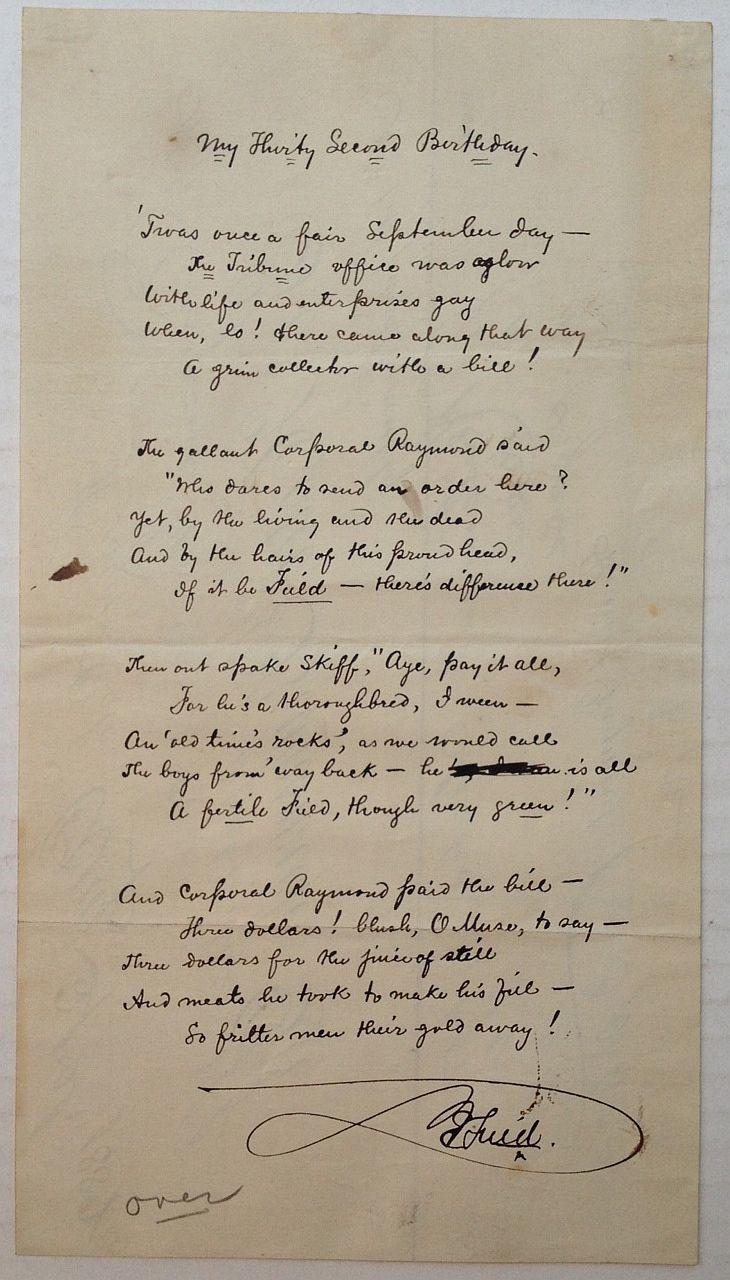 My Thirty Second Birthday.
'Twas once a fair September day —
The Tribune office was aglow
With life and enterprises gay
When, lo! there came along that way
A grim collector with a bill!
The gallant Corporal Raymond said
"Who dares to send an order here?
Yet, by the living and the dead
And by the hairs of this proud head,
If it be Field — there's difference there!"
Then out spake Skiff, "Aye, pay it all,
For he's a thoroughbred, I ween —
An 'old time's rocks', as we would call
The boys from 'way back — he is all
A fertile Field, though very green!"
And Corporal Raymond paid the bill —
Three dollars! blush, O Muse, to say —
Three dollars for the juice of still
And meats he took to make his fill —
So fritter men their gold away!
Field.
over